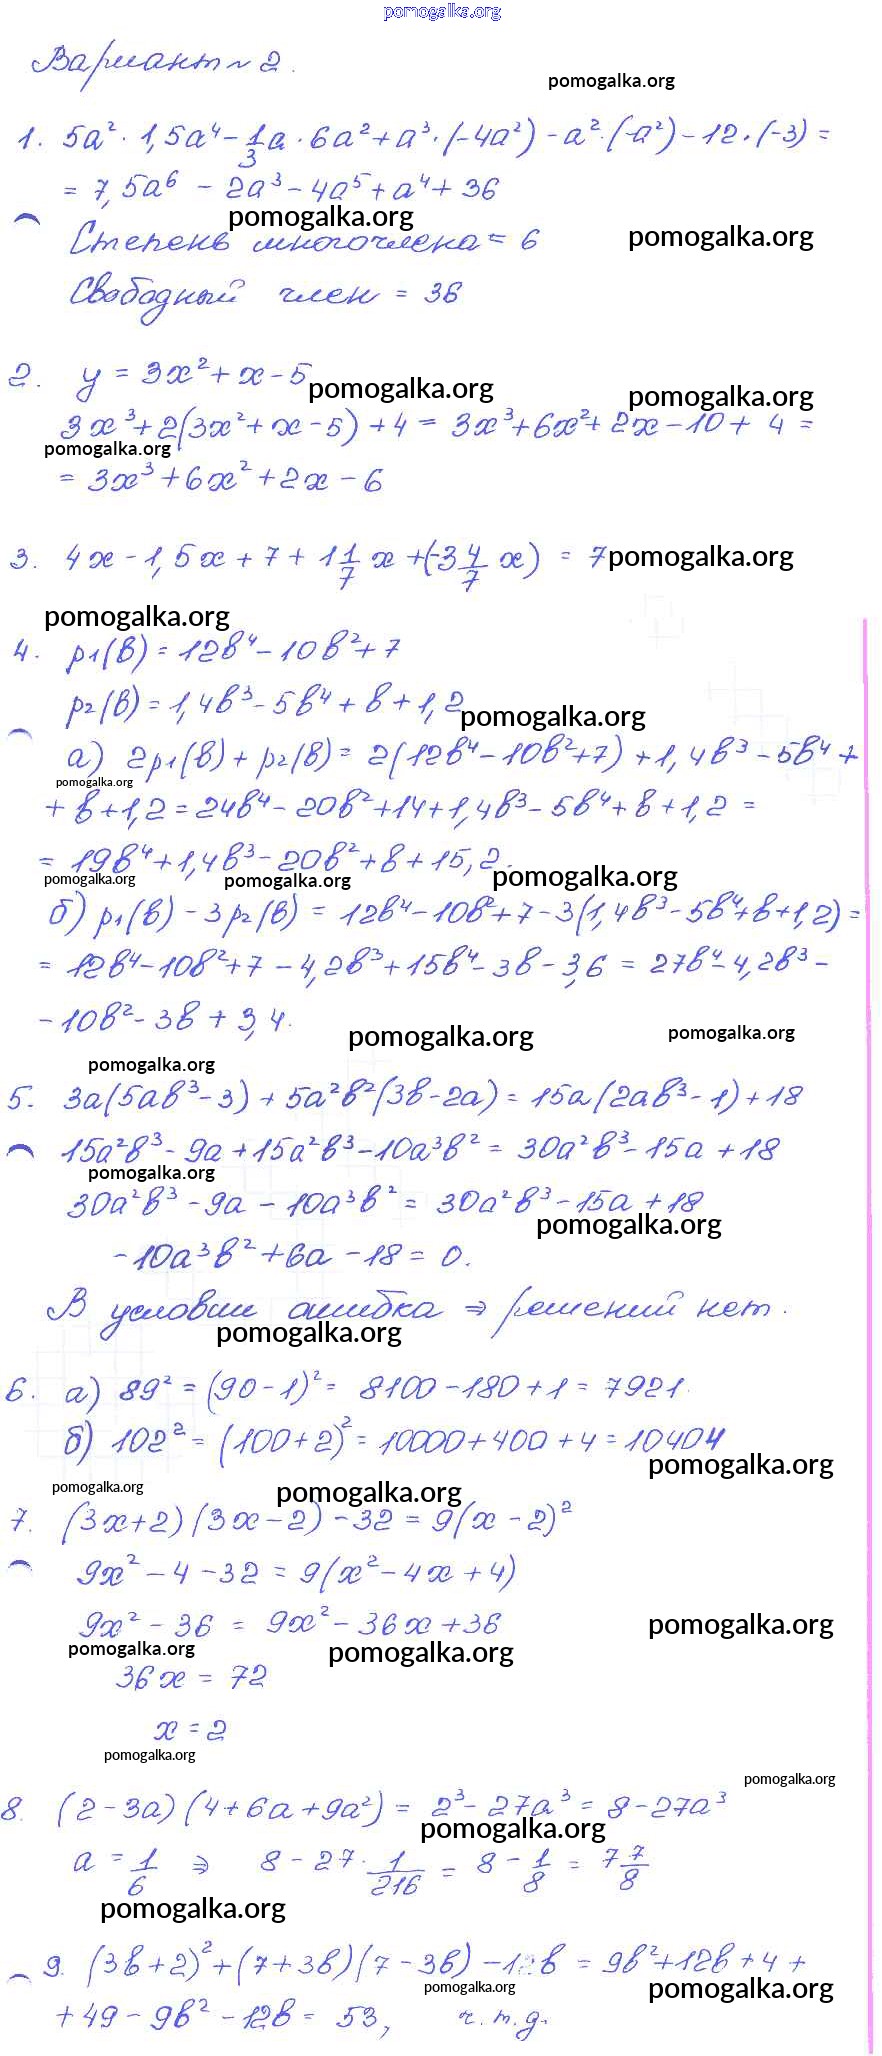 pomogalka.org
Вариант № 2.
pomogalka.org
1. 5a² · 1,5a⁴ - 1/3 a · 6a² + a³ · (-4a²) - a² · (-a²) - 12 · (-3) =
= 7,5a⁶ - 2a³ - 4a⁵ + a⁴ + 36
pomogalka.org
Степень многочлена = 6
pomogalka.org
Свободный член = 36
2. y = 3x² + x - 5
pomogalka.org
pomogalka.org
3x³ + 2(3x² + x - 5) + 4 = 3x³ + 6x² + 2x - 10 + 4 =
pomogalka.org
= 3x³ + 6x² + 2x - 6
3. 4x - 1,5x + 7 + 1 1/7 x + (-3 4/7 x) = 7
pomogalka.org
pomogalka.org
4. p₁(b) = 12b⁴ - 10b² + 7
p₂(b) = 1,4b³ - 5b⁴ + b + 1,2
pomogalka.org
а) 2p₁(b) + p₂(b) = 2(12b⁴ - 10b² + 7) + 1,4b³ - 5b⁴ +
pomogalka.org
+ b + 1,2 = 24b⁴ - 20b² + 14 + 1,4b³ - 5b⁴ + b + 1,2 =
= 19b⁴ + 1,4b³ - 20b² + b + 15,2.
pomogalka.org
pomogalka.org
pomogalka.org
б) p₁(b) - 3p₂(b) = 12b⁴ - 10b² + 7 - 3(1,4b³ - 5b⁴ + b + 1,2) =
= 12b⁴ - 10b² + 7 - 4,2b³ + 15b⁴ - 3b - 3,6 = 27b⁴ - 4,2b³ -
- 10b² - 3b + 3,4.
pomogalka.org
pomogalka.org
pomogalka.org
5. 3a(5ab³ - 3) + 5a²b²(3b - 2a) = 15a(2ab³ - 1) + 18
15a²b³ - 9a + 15a²b³ - 10a³b² = 30a²b³ - 15a + 18
pomogalka.org
30a²b³ - 9a - 10a³b² = 30a²b³ - 15a + 18
pomogalka.org
-10a³b² + 6a - 18 = 0.
В условии ошибка ⇒ решений нет.
pomogalka.org
6. а) 89² = (90 - 1)² = 8100 - 180 + 1 = 7921.
б) 102² = (100 + 2)² = 10000 + 400 + 4 = 10404
pomogalka.org
pomogalka.org
pomogalka.org
7. (3x + 2)(3x - 2) - 32 = 9(x - 2)²
9x² - 4 - 32 = 9(x² - 4x + 4)
9x² - 36 = 9x² - 36x + 36
pomogalka.org
pomogalka.org
pomogalka.org
36x = 72
x = 2
pomogalka.org
pomogalka.org
8. (2 - 3a)(4 + 6a + 9a²) = 2³ - 27a³ = 8 - 27a³
pomogalka.org
a = 1/6 ⇒ 8 - 27 · 1/216 = 8 - 1/8 = 7 7/8
pomogalka.org
9. (3b + 2)² + (7 + 3b)(7 - 3b) - 12b = 9b² + 12b + 4 +
pomogalka.org
pomogalka.org
+ 49 - 9b² - 12b = 53, ч.т.д.